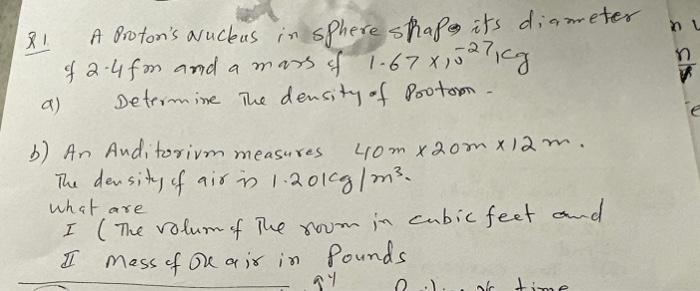 Q1. A Proton's Nucleus in sphere shape its diameter
of 2.4 fm and a mass of 1.67 x 10^-27 kg
a) Determine The density of Prooton -
b) An Auditorium measures 40m x 20m x 12m.
The density of air is 1.20 kg/m³.
What are
I ( The volum of The room in cubic feet and
II Mass of the air in Pounds
time